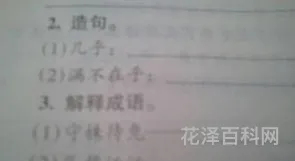 2. 造句。
(1)几乎:
(2)满不在乎:
3. 解释成语。
(1)守株待兔
花泽百科网